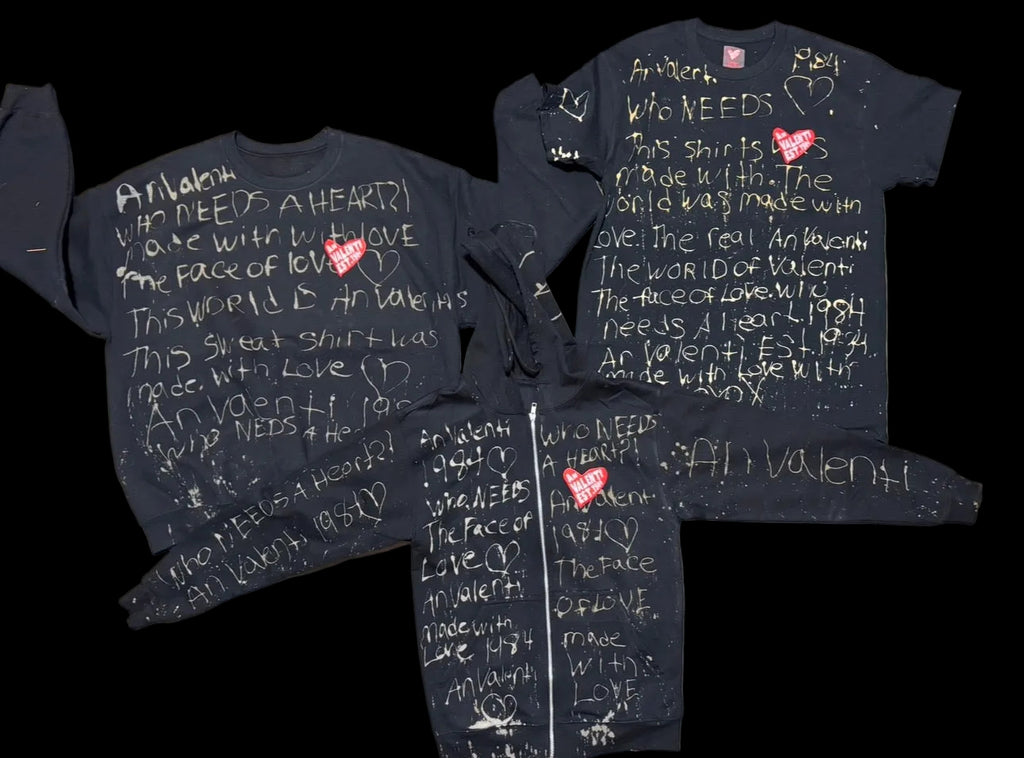 Ari Valenti
WHO NEEDS A HEART?!
made with with LOVE
The Face of love
ARI VALENTI EST.
This WORLD is Ari Valentis
This Sweat shirt was
made with Love
Ari Valenti
Who NEDS A Hea
Ari Valenti
1984
WhO NEEDS
This shirts
ARI VALENTI EST.
made with. The
world was made with
Love. The real Ari Valenti
The WORLD OF Valenti
The face of Love. Who
needs A Heart. 1984
Ari Valenti. EST.
made with Love with
Ari Valenti
1984
Who NEEDS
The Face OF
Love
Ari Valenti
made with
Love 1984
Ari Valenti
Who NEEDS
A HEART?!
ARI VALENTI EST.
Ari Valenti
1984
The Face
OF LOVE
made
with
LOVE
Who NEEDS A Heart?!
Ari Valenti 1984
Ari Valenti